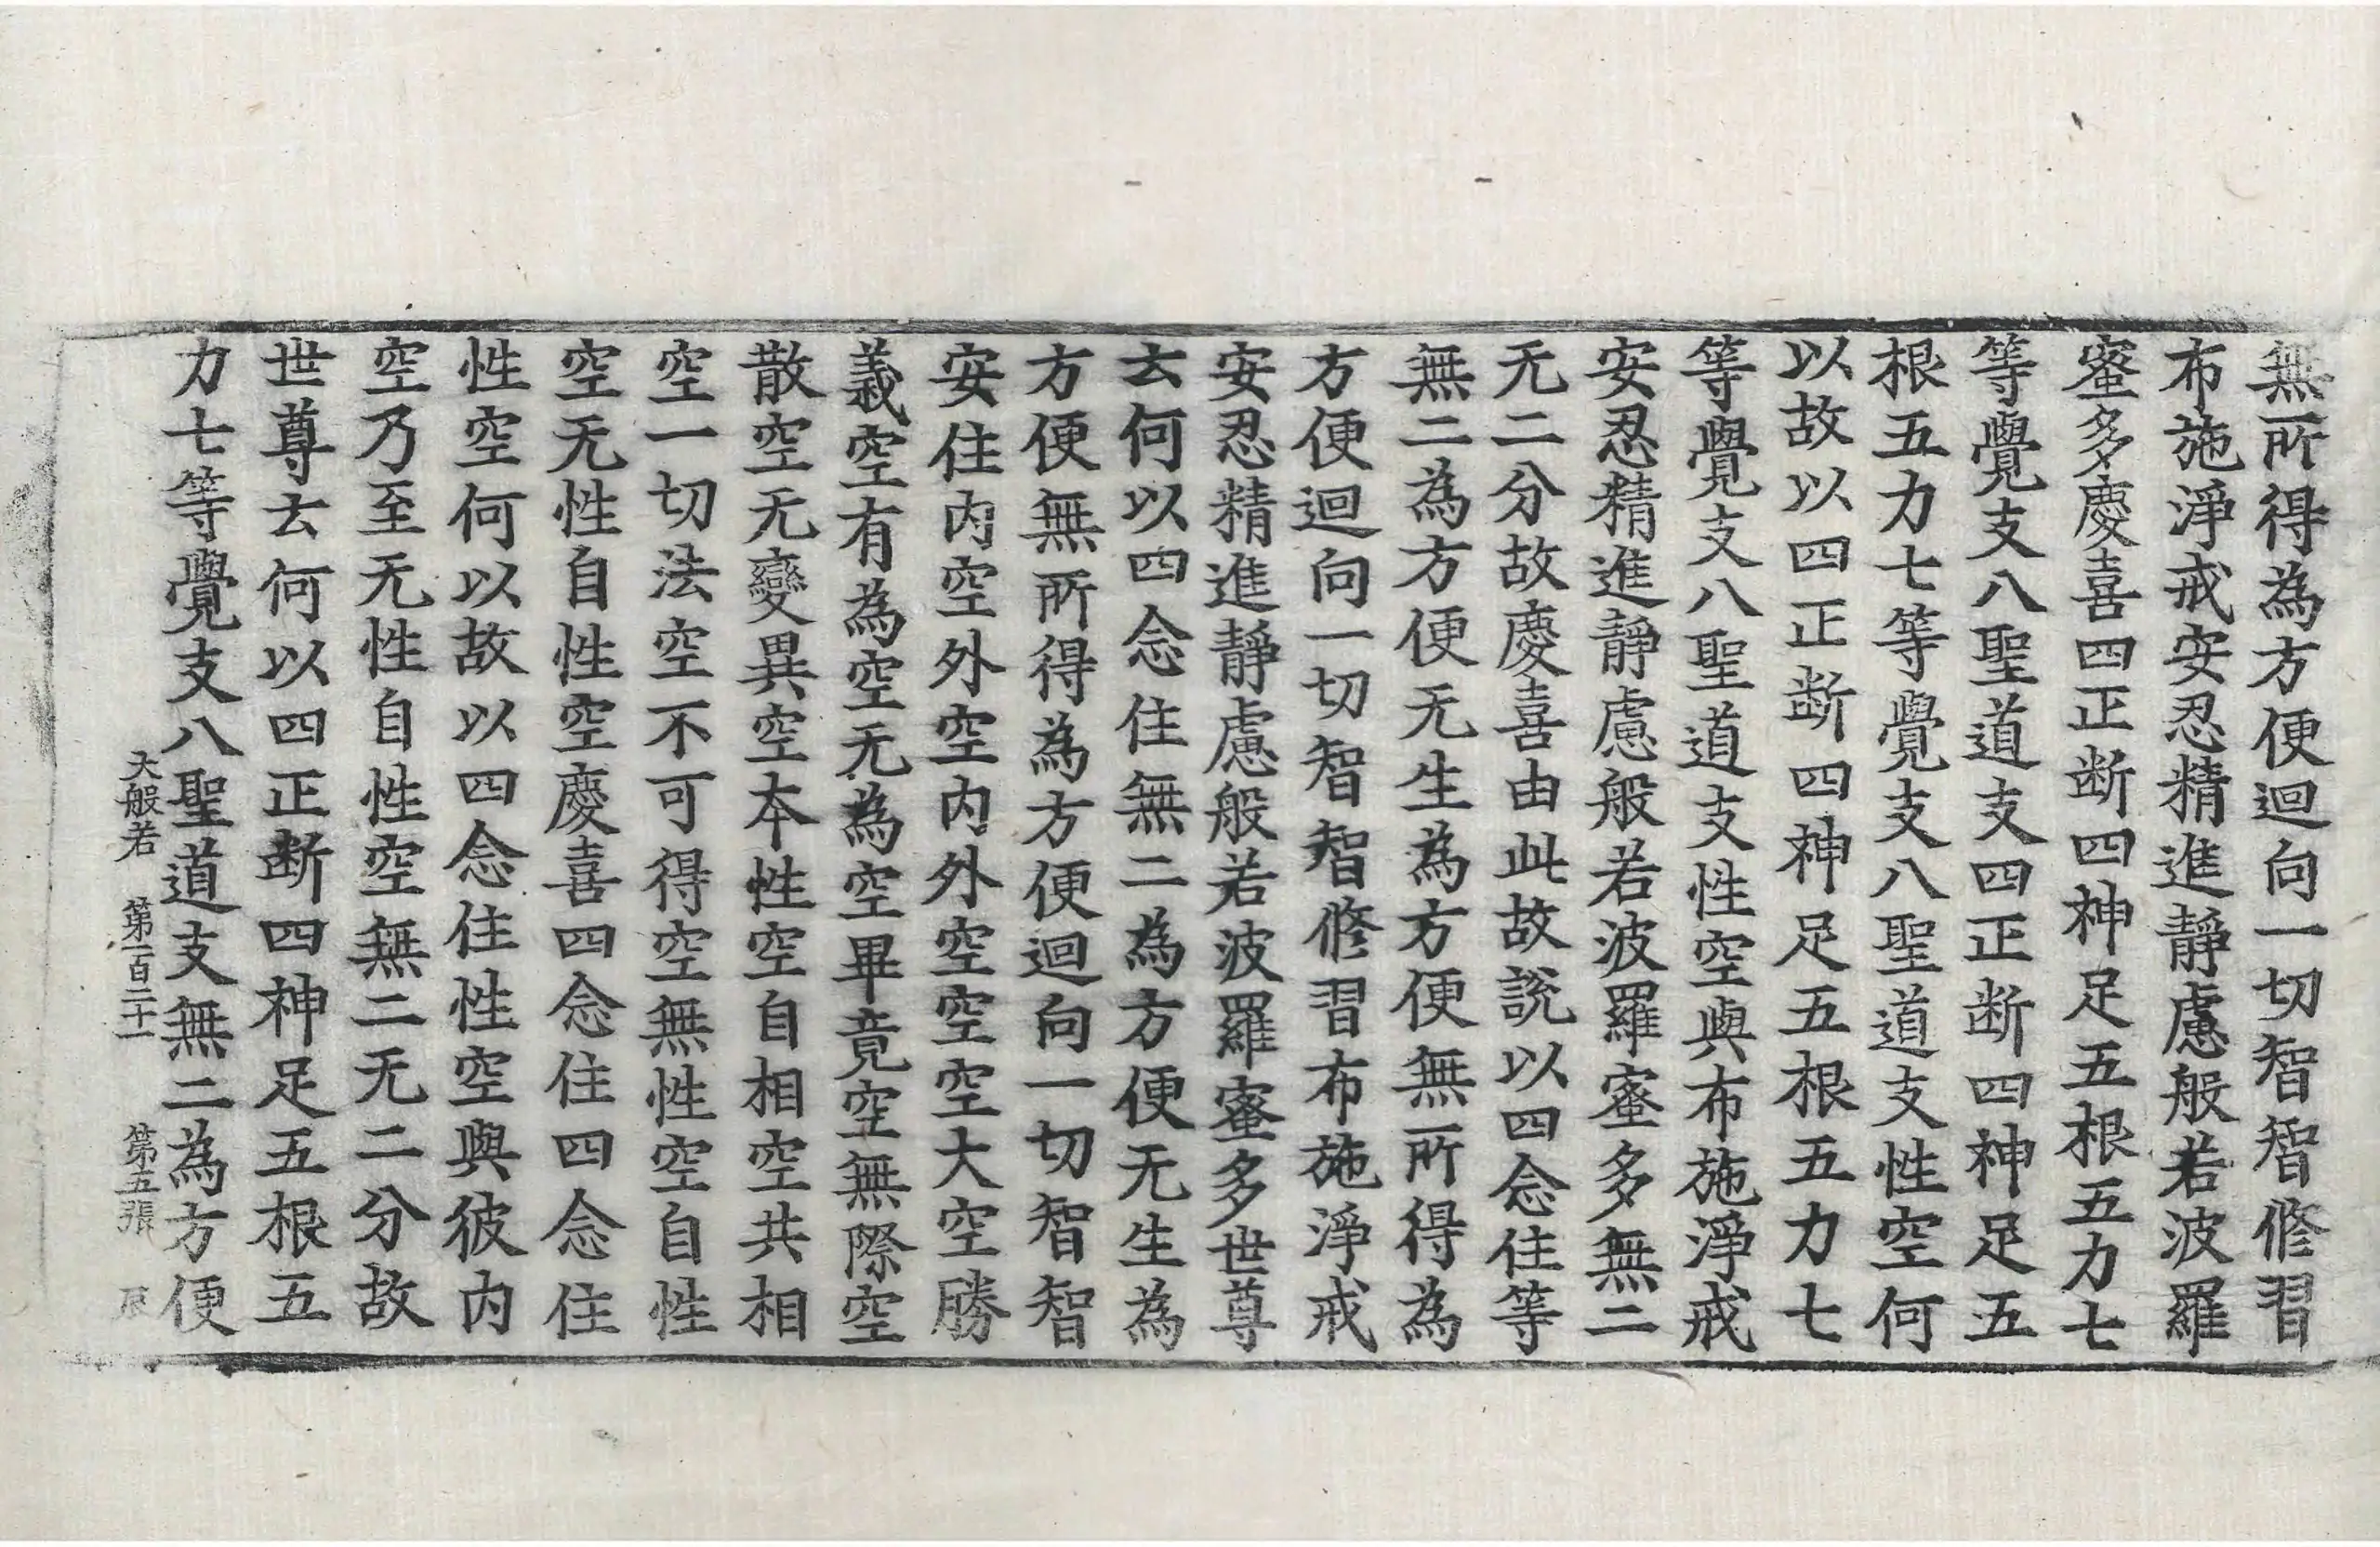 無所得為方便迴向一切智智修習
布施淨戒安忍精進靜慮般若波羅
蜜多慶喜四正断四神足五根五力七
等覺支八聖道支四正断四神足五
根五力七等覺支八聖道支性空何
以故以四正断四神足五根五力七
等覺支八聖道支性空與布施淨戒
安忍精進靜慮般若波羅蜜多無二
无二分故慶喜由此故說以四念住等
無二為方便无生為方便無所得為
方便迴向一切智智修習布施淨戒
安忍精進靜慮般若波羅蜜多世尊
云何以四念住無二為方便无生為
方便無所得為方便迴向一切智智
安住內空外空內外空空空大空勝
義空有為空无為空畢竟空無際空
散空无變異空本性空自相空共相
空一切法空不可得空無性空自性
空无性自性空慶喜四念住四念住
性空何以故以四念住性空與彼內
空乃至无性自性空無二无二分故
世尊云何以四正断四神足五根五
力七等覺支八聖道支無二為方便
大般若 第一百二十一 第五張